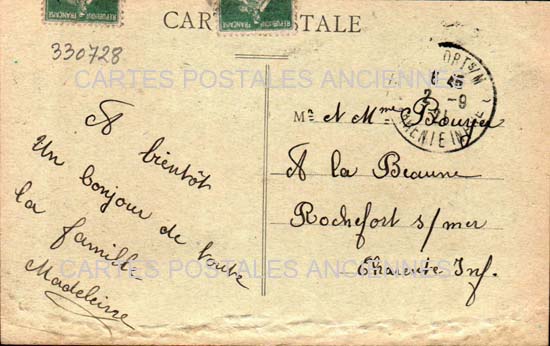 CARTE POSTALE
330728
CARTES POSTALES ANCIENNES
A bientôt
Un bonjour de toute
la famille
Madeleine
M. et Mme Bouvier
A la Beaune
Rochefort s/mer
Charente Inf.
CARTES POSTALES ANCIENNES